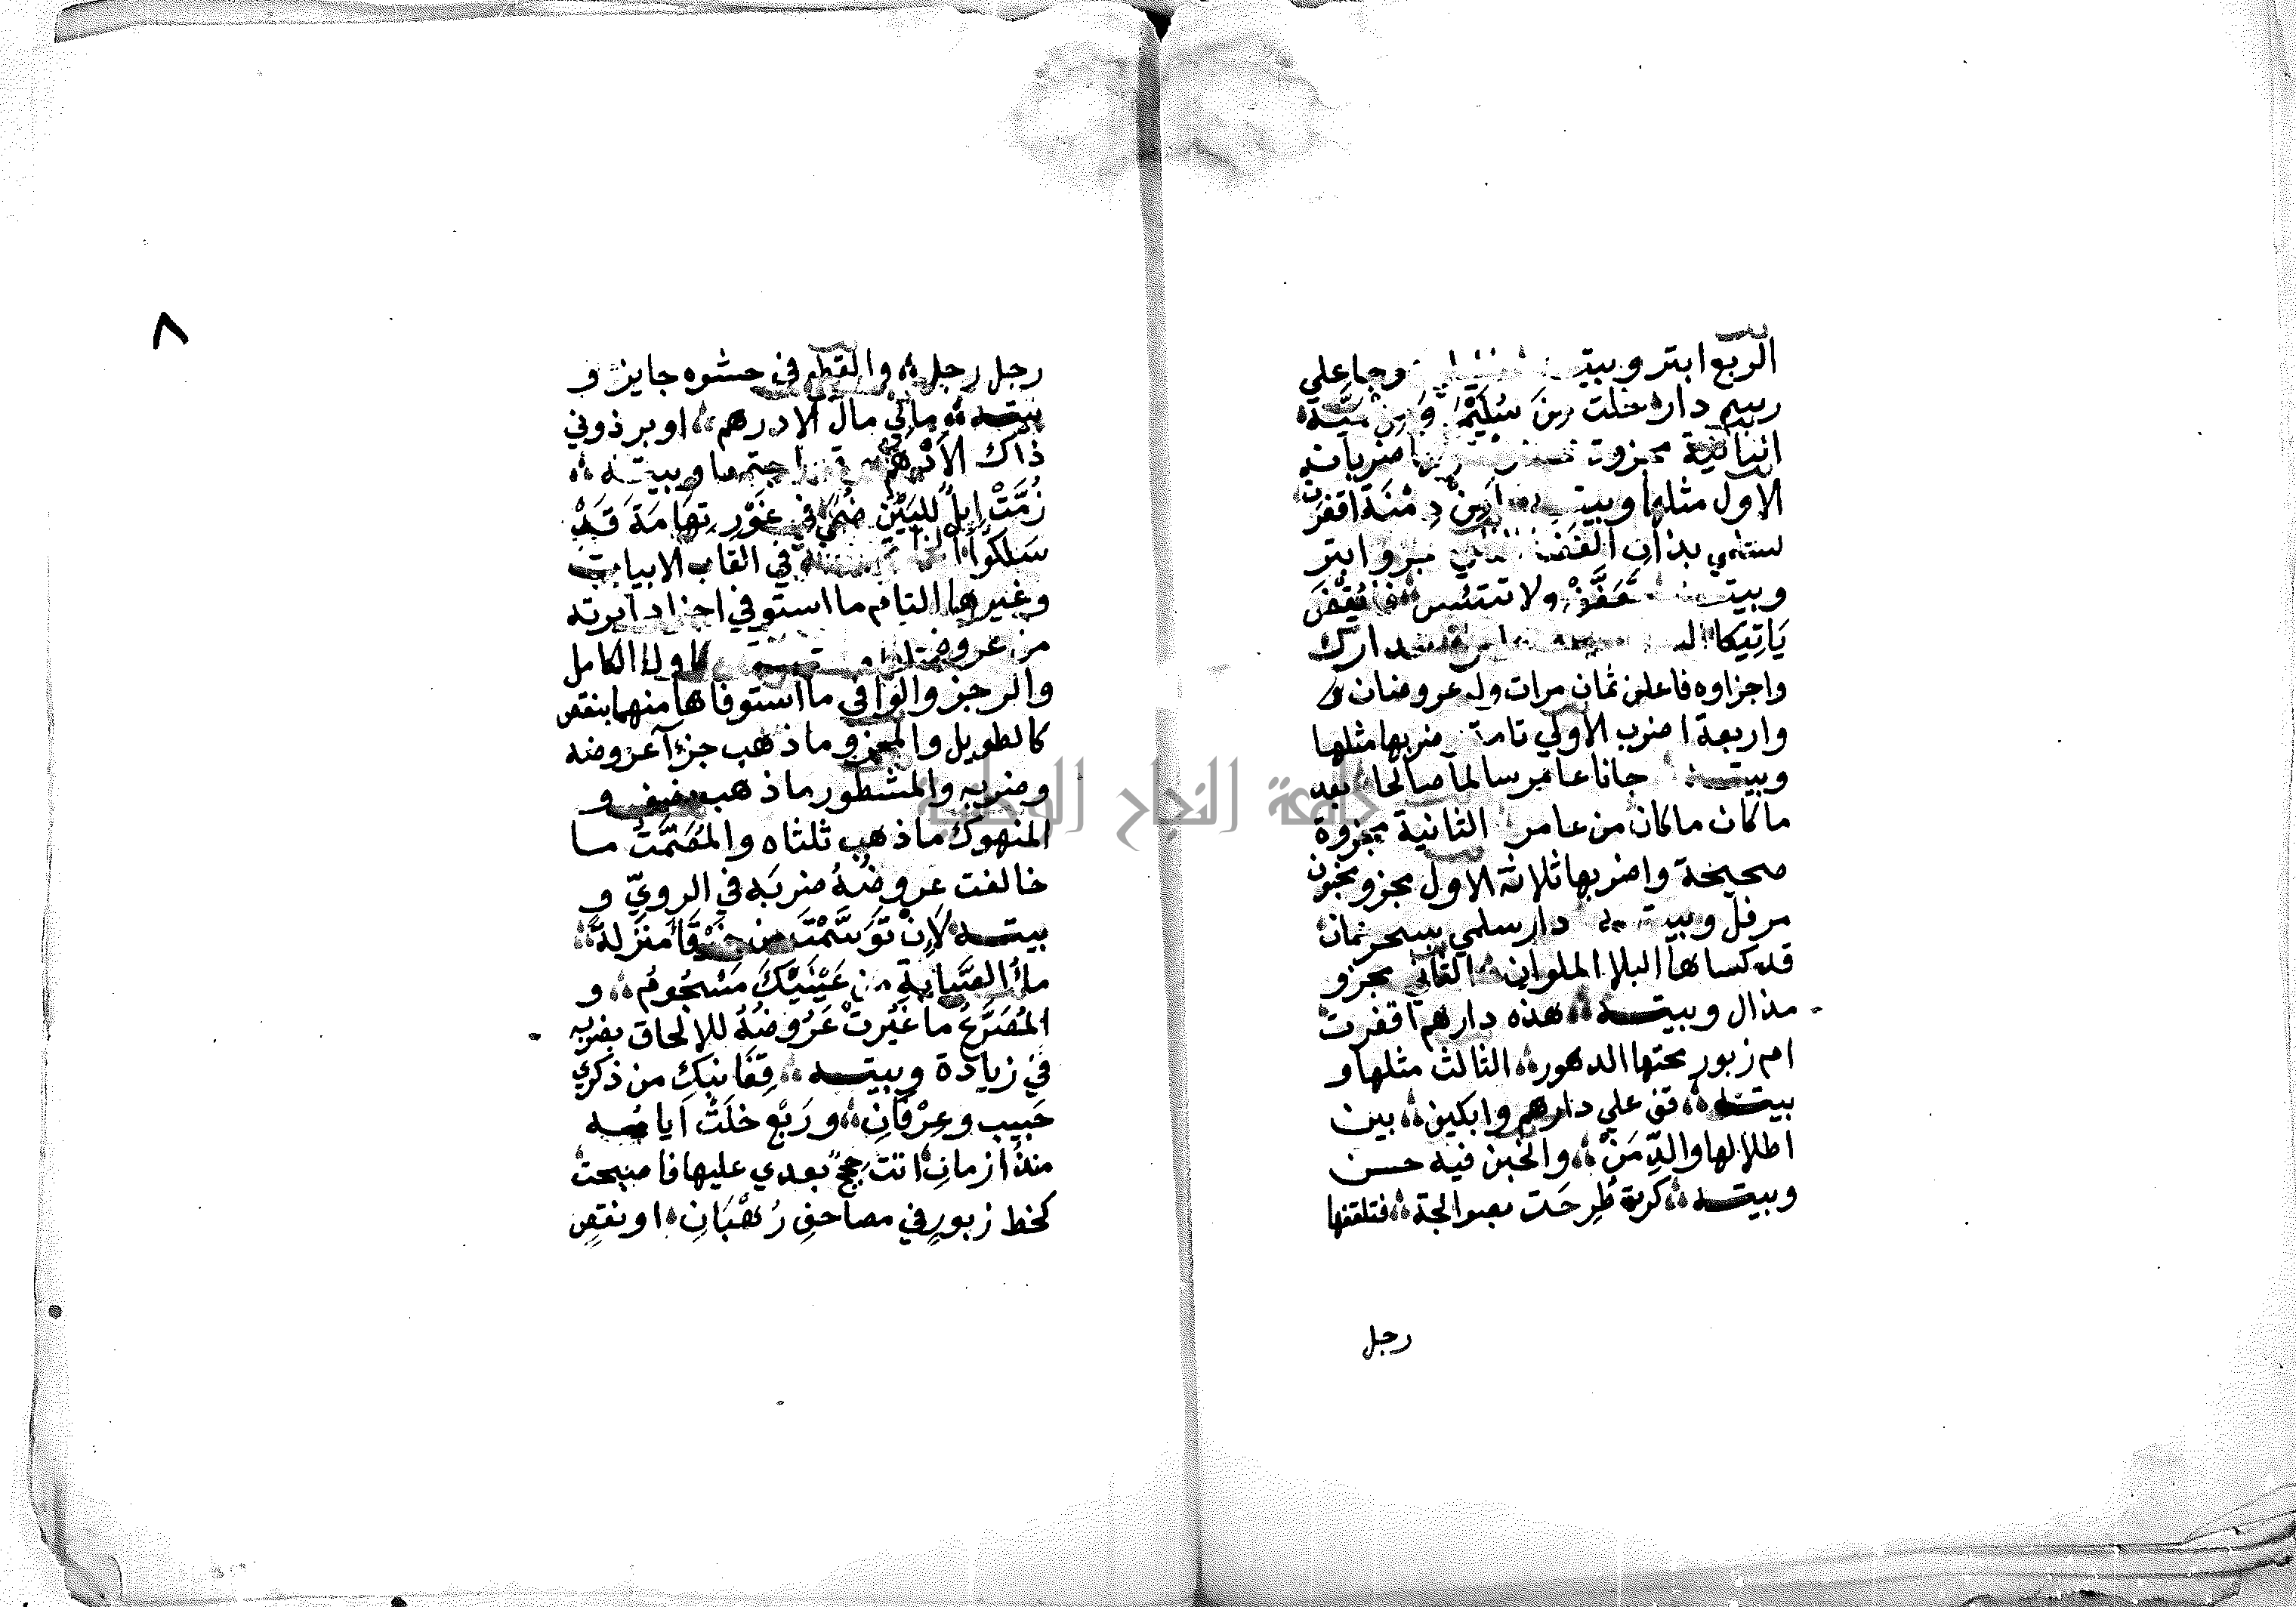 الربع ابتر وبيته خليلي عوجا علي
رسم دار خلت من سليمي ومن ميه
الثانية مجزوة
الاول مثلها وبيته امن دمنة اقفرت
لسلمي بذات الغضا مجزو ابتر
وبيته تعفف ولا تبتئس فما يقض
ياتيكا المتدارك
واجزاوه فاعلن ثمان مرات وله عروضان و
واربعة اضرب الاولي تامة وضربها مثلها
وبيته جانا عامر سالما صالحا بعد
ماكان ماكان من عامر الثانية مجزوة
صحيحة واضربها ثلاثة الاول مجزو مخبون
مرفل وبيته دار سلمي بسحر عمان
قد كساها البلا الملوان الثاني مجزو
مذال وبيته هذه دارهم اقفرت
ام زبور محتها الدهور الثالث مثلها و
بيته قف علي دارهم وابكين بين
اطلالها والدِّمَنْ والخبن فيه حسن
وبيته كرة طُرِحَت بصوالجة فتلقفها
رجل
٨
رجل رجل والقطع في حشوه جايز و
بيته ومالي مال الا درهم او برذوني
ذاك الاَدْهم اجتمعا وبيته
زُمَّتْ ابلٌ للبَيْن ضُحًي في غَوْرِ تِهَامَةَ قَدْ
سَلكُوا في القاب الابيات
وغيرها التام ما استوفي اجزا دايرته
من عروض كاول الكامل
والرجز والوافي ما استوفاها منهما بنقص
كالطويل والمجزو ما ذهب جزءا عروضه
وضربه والمشطور ما ذهب نصفه و
المنهوك ما ذهب ثلثاه والمُصَمَّتُ مـا
خالفت عروضُهُ ضربَه في الرويّ و
بيته لاَنْ تَوَسَّمْتَ من خَرْقَاَ منزلةً
ماءُ الصَّبابةِ من عَيْنَيْكَ مَسْجُومُ و
المُصَرَّعُ ما غُيِّرتْ عَرُوضُهُ للالحاق بضربه
في زيادة وبيته قِفَا نبكِ من ذكري
حَبيب وعِرْفَانِ ورَبْع خَلَتْ اَياته
منذُ ازمانِ اتت حججٌ بعدي عليها فاصبحت
كخط زبورٍ في مصاحف رُهْبَانِ او نقصٍ